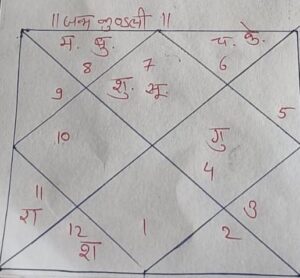 || जन्म कुण्डली ||
म. बु. 7 च. के.
8 शु. सू. 6
9 5
10 गु
4
11 3
रा 12 1 2
श